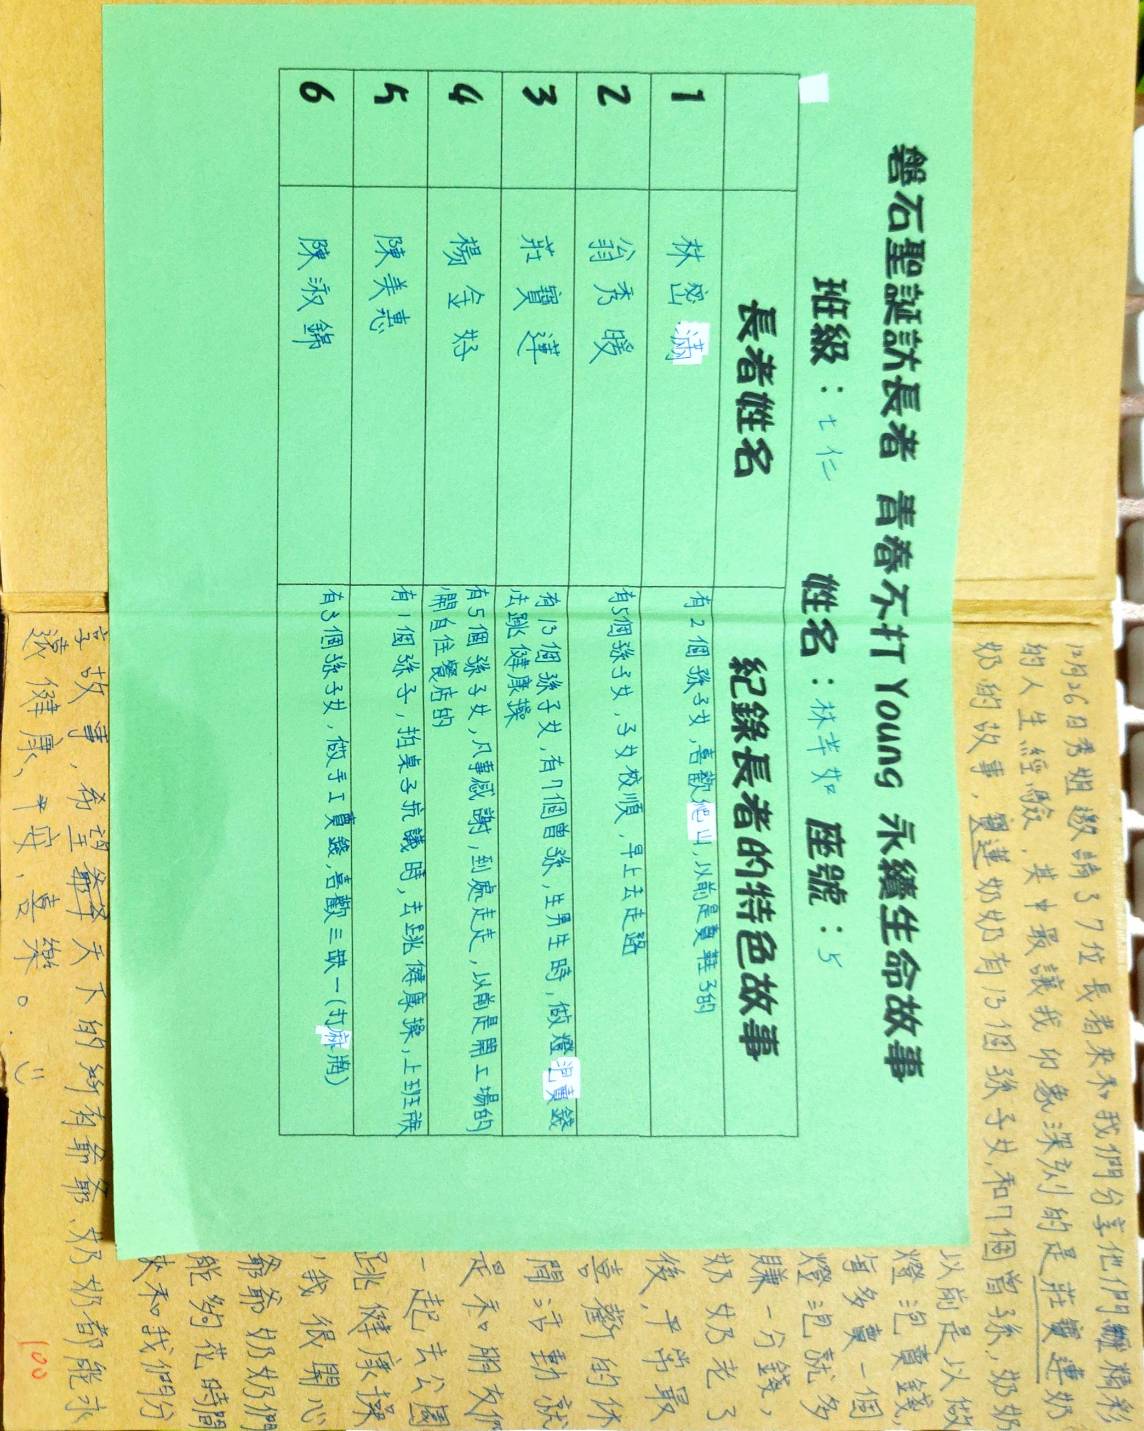 磐石聖誕訪長者 青春不打 Young 永續生命故事
班級：七仁 姓名：林芊如 座號：5
長者姓名 紀錄長者的特色故事
1 林密滿 有2個孫子女,喜歡爬山,以前是賣鞋子的
2 翁秀暖 有5個孫子女,子女孝順,早上去走路
3 莊寶蓮 有13個孫子女,有7個曾孫,生男生時,做燈泡賣錢
法跳健康操
4 楊金好 有5個孫子女,凡事感謝,到處走走,以前是開工場的
開自住餐店的
5 陳美惠 有1個孫子,拍桌子抗議時,去跳健康操,上班族
6 陳淑錦 有3個孫子女,做手工賣錢,喜歡三缺一(打麻將)
12月26日秀姐邀請了7位長者來和我們分享他們精彩
的人生經驗,其中最讓我印象深刻的是莊寶蓮奶
奶的故事,寶蓮奶奶有13個孫子女,和7個曾孫,奶奶
以前是以做
燈泡賣錢,
每多賣一個
燈泡就多
賺一分錢,
奶奶老了
後,平常最
喜歡的休
閒活動就
是和朋友們
一起去公園
跳健康操
,我很開心
爺爺奶奶們
能夠花時間
來和我們分
享故事,希望天下的所有爺爺、奶奶都能永
遠健康、平安、喜樂。
100